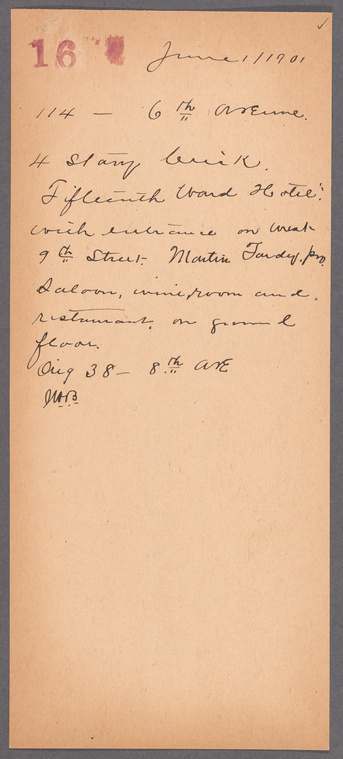 16
June 1/1901
114 — 6th Avenue.
4 Story brick.
"Fifteenth Ward Hotel"
with entrance on West
9th Street. Martin Tardy, pro.
Saloon, wine room and
restaurant, on ground
floor.
38 — 8th Ave